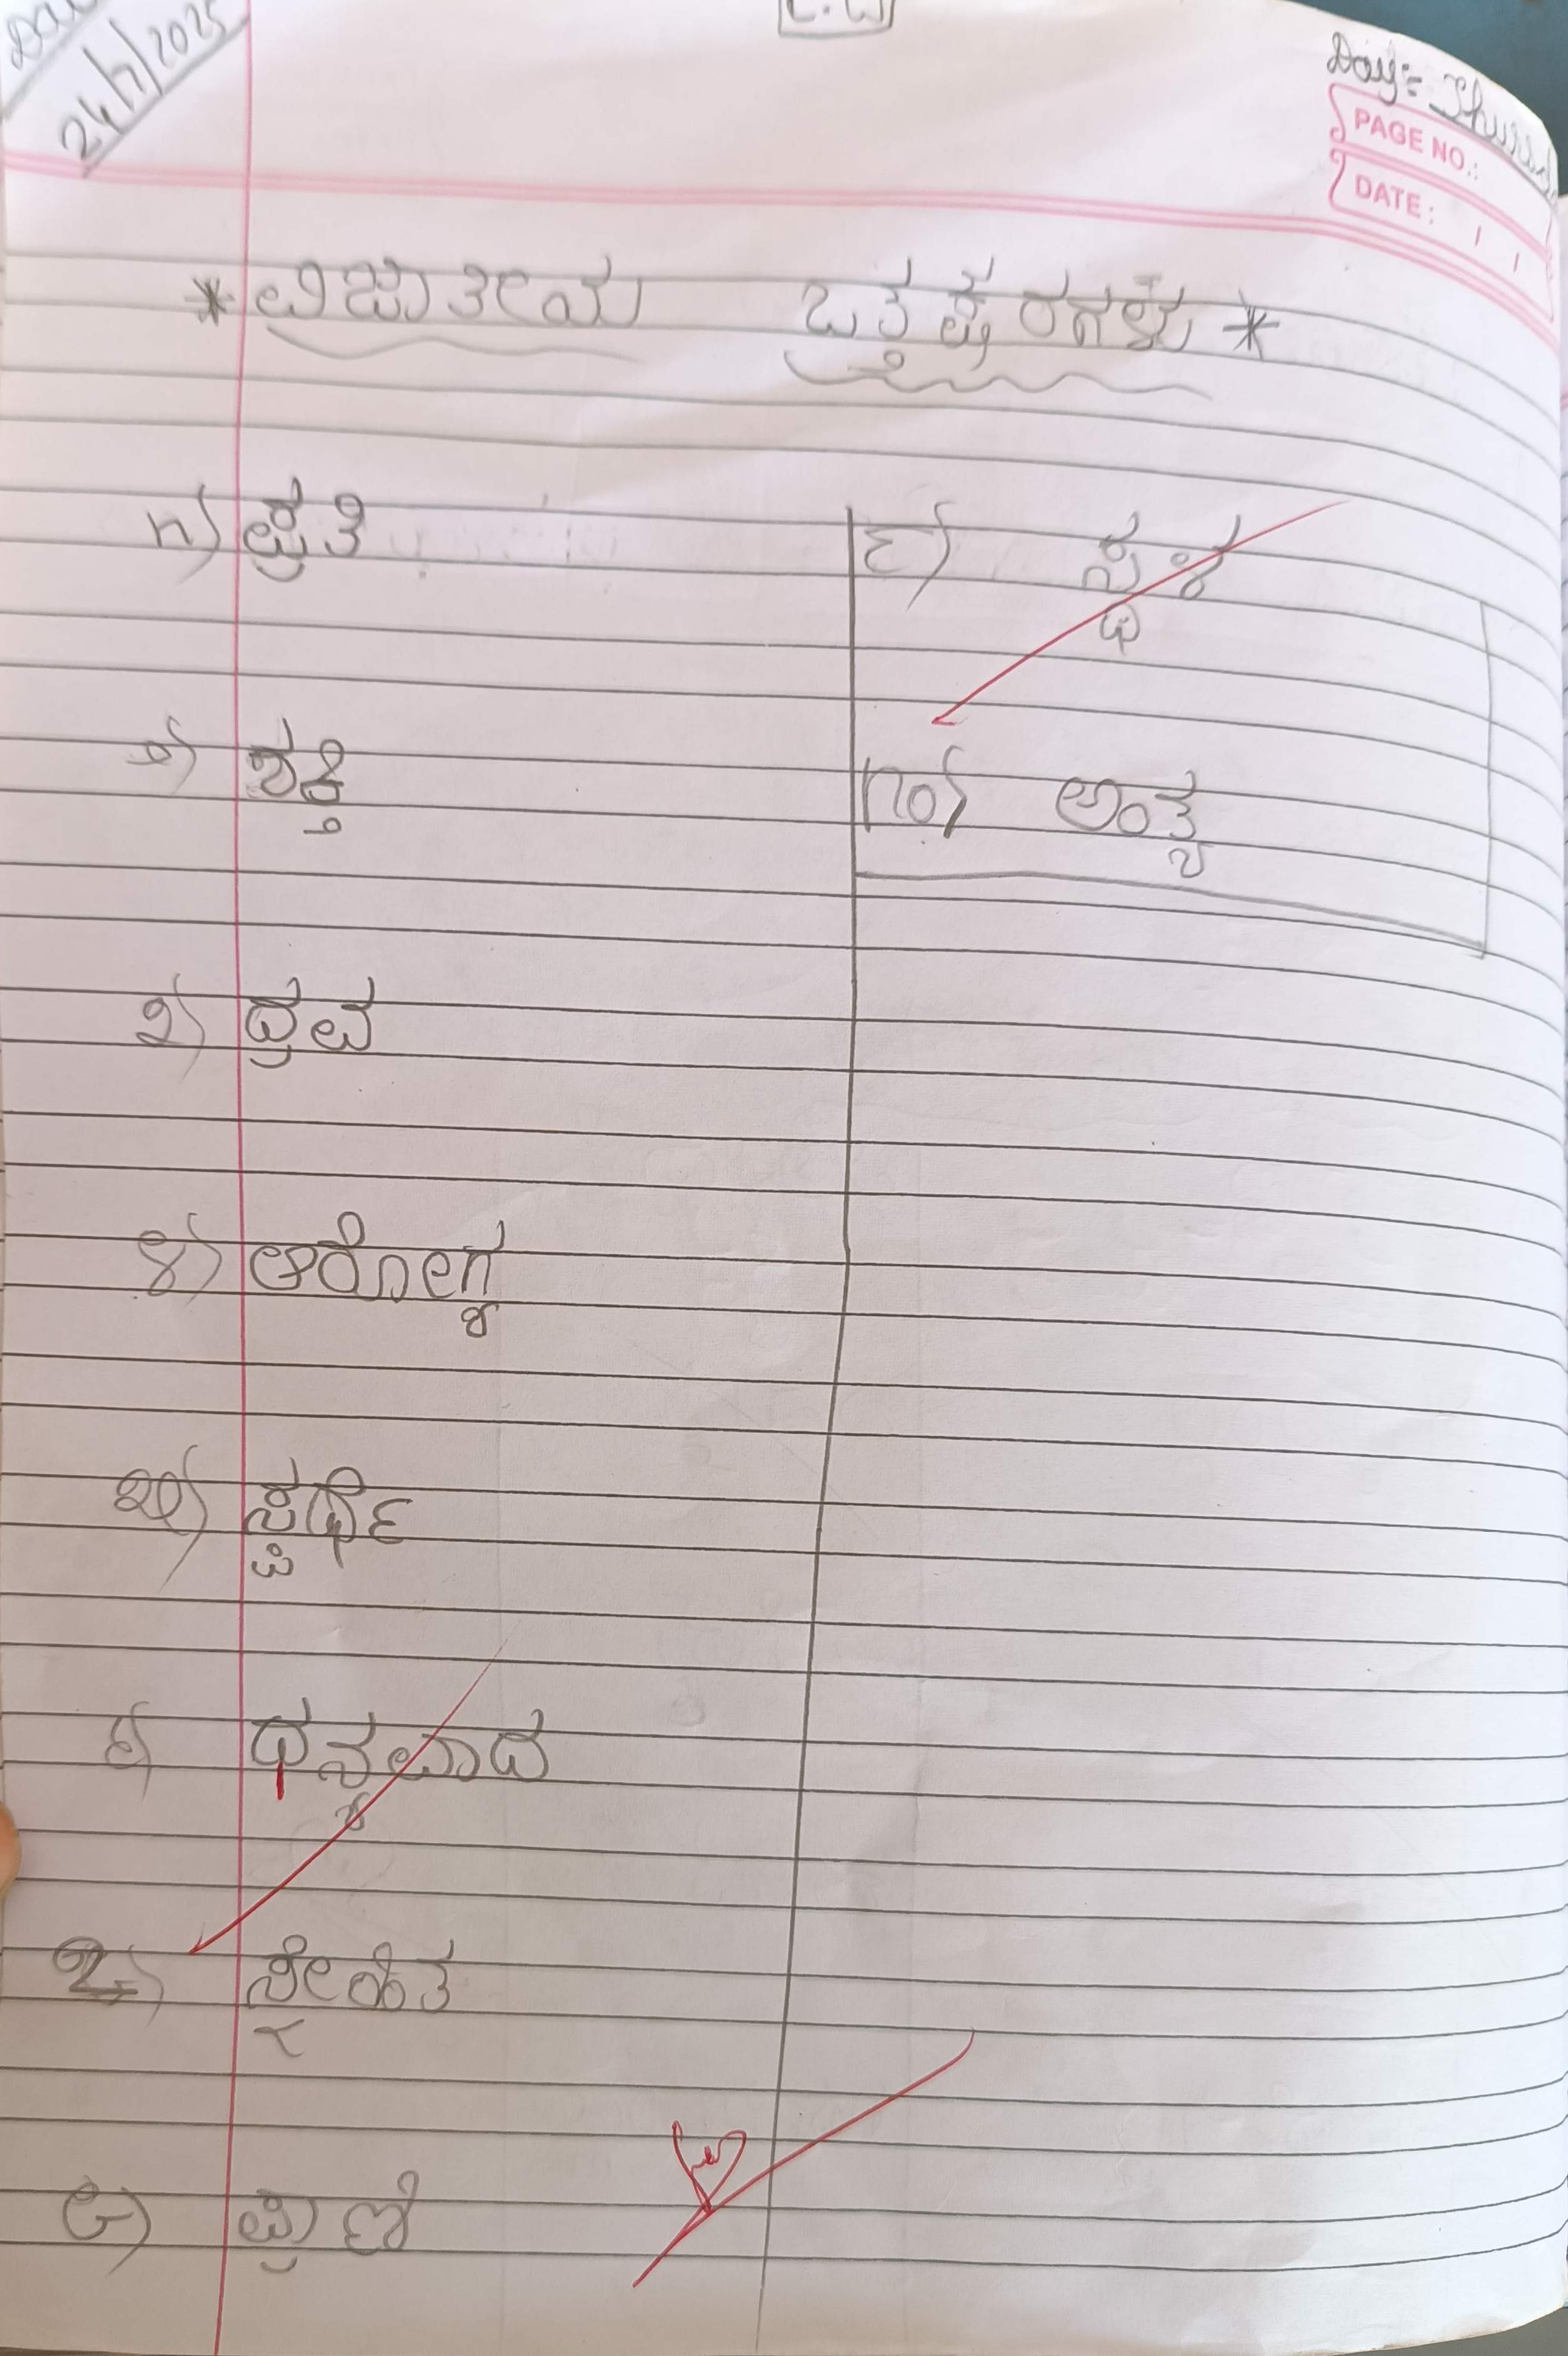 24/7/2025
C.W
Day:- Thursday
PAGE NO.:
DATE: / /
* ವಿಜಾತೀಯ ಒತ್ತಕ್ಷರಗಳು *
೧) ಪ್ರತಿ
೨) ಶಕ್ತಿ
೩) ದ್ರವ
೪) ಆರೋಗ್ಯ
೫) ಸ್ಪರ್ಧಿ
೬) ಧನ್ಯವಾದ
೭) ಸ್ನೇಹಿತ
೮) ಪ್ರಾಣಿ
೯) ಸ್ಥಳ
೧೦) ಅಂತ್ಯ